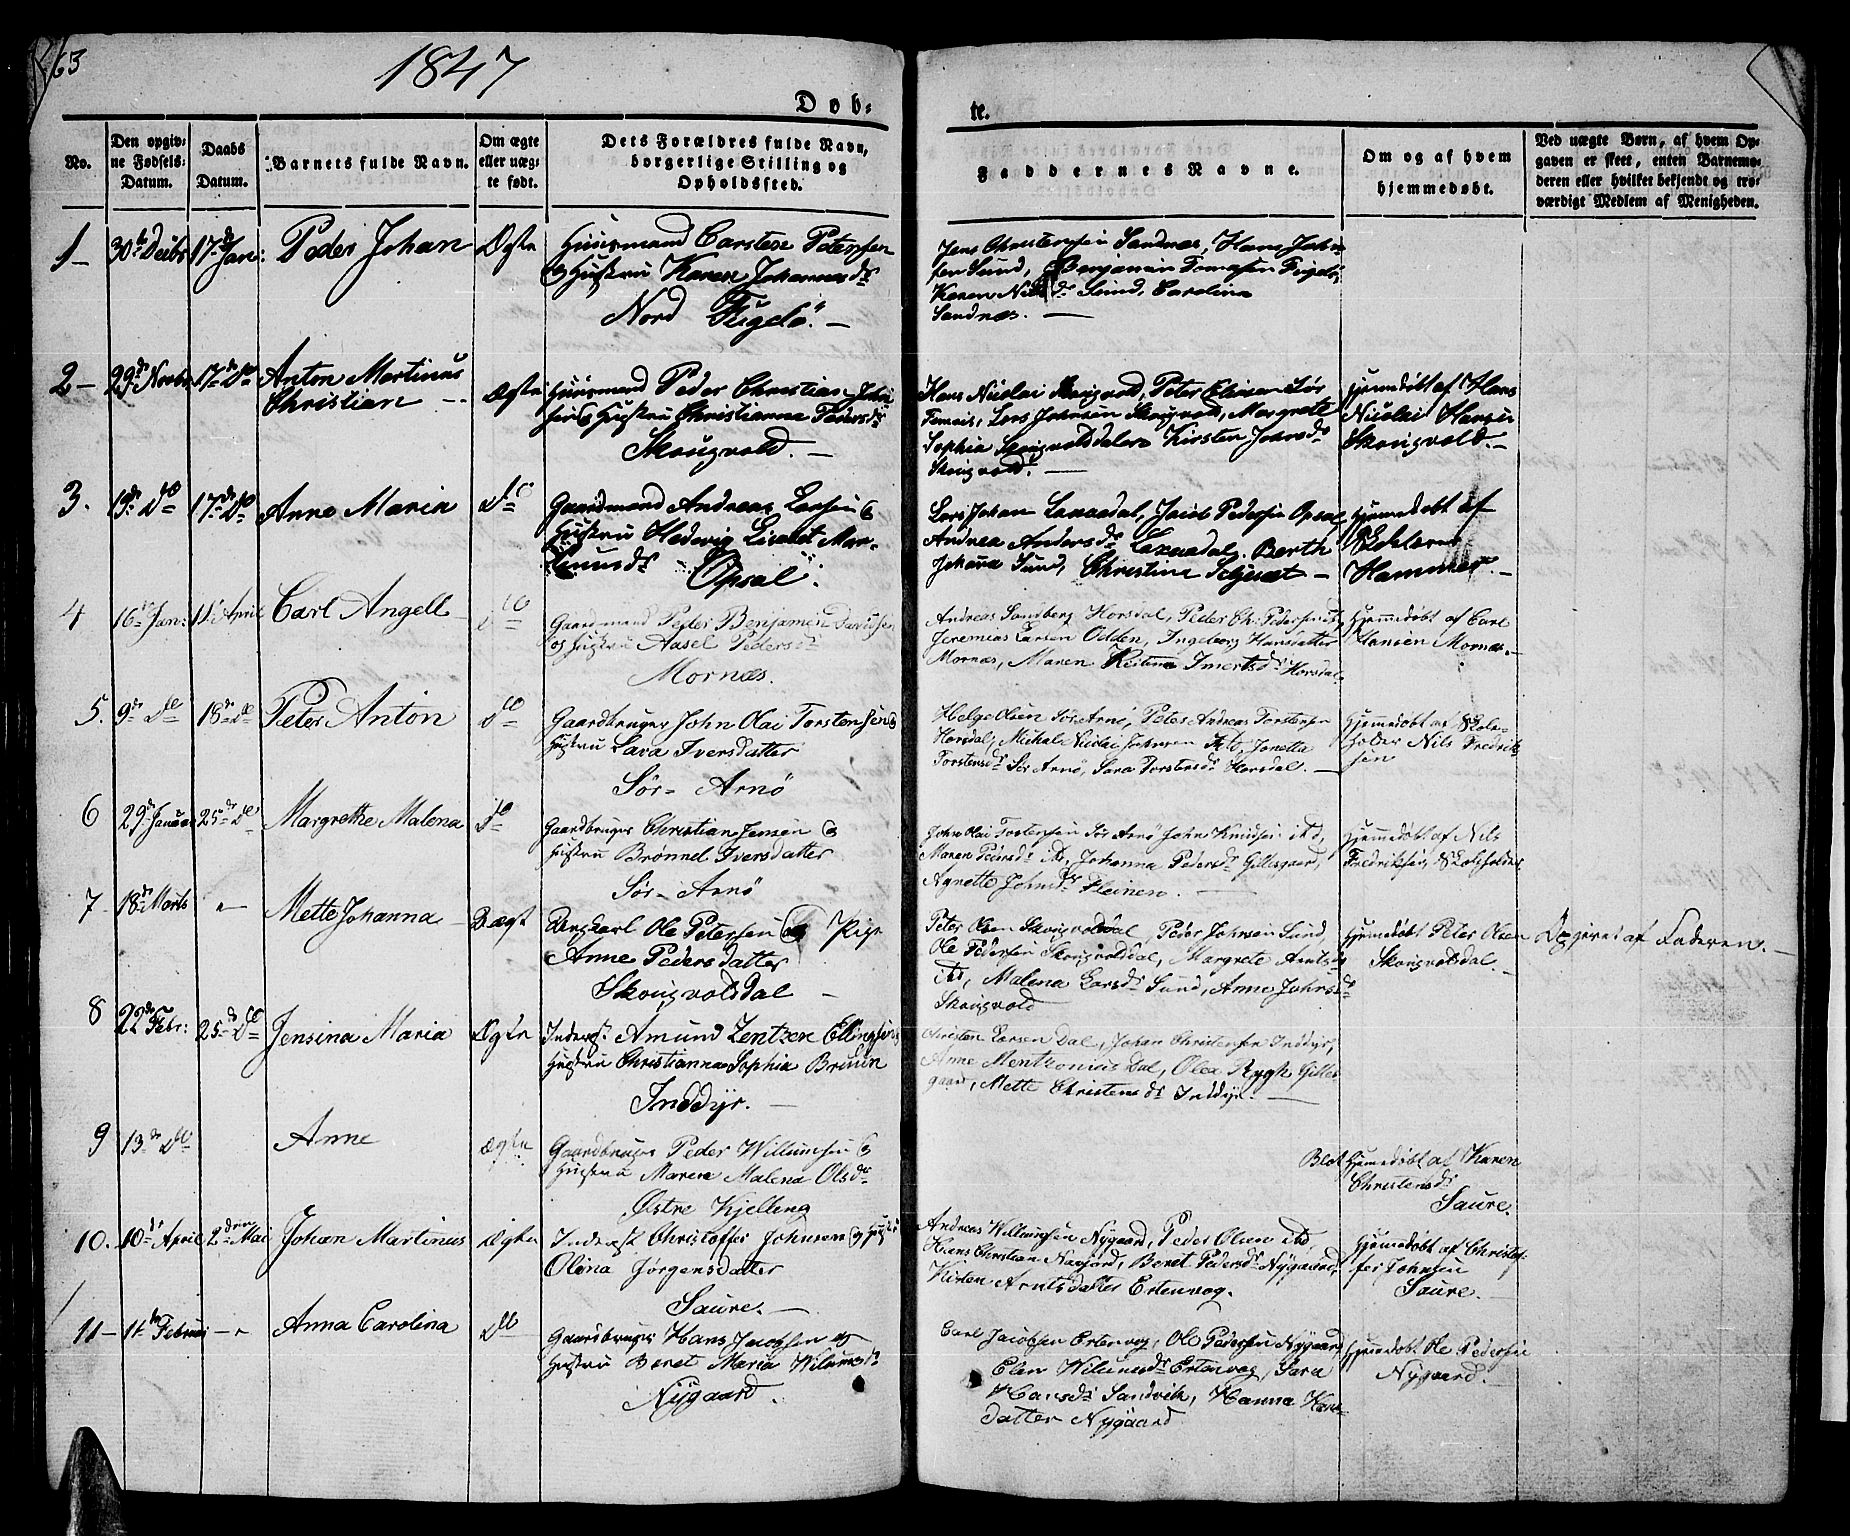 63
1847
Döb-
te.
No.
Den opgiv-
ne Fødsels-
Datum.
Daabs
Datum.
Barnets fulde Navn.
Om ægte
eller uæg-
te født.
Dets Forældres fulde Navn,
borgerlige Stilling og
Opholdssted.
Faddernes Navne.
Om og af hvem
hjemmedøbt.
Ved uægte Børn, af hvem Op-
gaven er skeet, enten Barnemo-
deren eller hvilket bekjendt og tro-
værdigt Medlem af Menigheden.
1 –
30te Decbr
17de Jan:
Peder Johan
Ægte
Huusmand Carstens Petersen
og Hustru Karen Johannesdr
Nord Fugelö. –
Jens Christensen Sandnæs, Hans John-
sen Sund, Benjamin Tomasen Fugelö,
Karen Nilsdr Sund, Carolina
Sandnæs. –
2 –
29de Novbr
17de Do
Anton Martinus
Christian
Ægte
Huusmand Peder Christian John
sen og Hustru Christianna Pedersdr
Skougvold. –
Hans Nicolai Skougvold, Peter Elinsen Sör
Lars Johnsen Skougvold, Margrete
Sophia Skougvolddalen Kirsten Johnsdr
Skougvold. –
Hjemmedöbt af Hans
Nicolai Hansen
Skougvold. –
3.
19de Do
17de Do
Anne Maria
Do
Gaardmand Andreas Larsen og
Hustru Hedevig Lisabet Mar-
Opsal.
Lars Johan Laxaadal, Jacob Pedersen Opsal
Andrea Andersdr Laxaadal, Berth
Johana Sund, Christina Seljeset –
Hjemmedöbt af
Hammer. –
4
16de Jan:
11te April
Carl Angell
Do
Gaardmand Peder Benjamin Davidsen
og Hustru Aasel Pedersdr
Mornæs.
Andreas Sandberg Horsdal, Peder Chr. Pedersen
Jeremias Larsen Odden, Ingeborg Hansdatter
Mornæs, Maren Kistina Imertsdr Horsdal
Hjemmedöbt af Carl
Hansen Mornæs. –
5.
9de Do
18de Do
Peter Anton
Do
Gaardbruger John Olai Torstensen og
Hustru Lava Iversdatter
Sör-Arnö
Helge Olsen Sör Arnö, Peter Andreas Torstensen
Horsdal, Mikal Nicolai Johnsen Arnö, Jonetta
Torstensdr Sör Arnö, Sara Torstensdr Horsdal. –
Hjemmedöbt af Skole-
holder Nils Fredrik
sen
6
29de Januar
25de Do
Margrethe Malena
Do
Gaardbruger Christian Jensen og
Hustru Brönnel Iversdatter
Sör-Arnö
John Olai Torstensen Sör Arnö John Knudsen ibd,
Maren Pedersdr ibd, Johanna Pedersdr Gillesgaard,
Agnette Johnsdr Fleinen. –
Hjemmedöbt af Nils
Fredriksen, Skoleholder
7
18de Marts
"
Mette Johanna
Uægt
Ungkarl Ole Petersen og Pige
Anne Pedersdatter
Skougvolsdal –
Peter Olsen Skougvolsdal, Peder Johnsen Sund,
Ole Pedersen Skougvolsdal, Margrete Arntsdr
ibd, Malena Larsdr Sund, Anne Johnsdr
Skougvold
Hjemmedöbt Peter Olsen
Skougvolsdal. –
Opgivet af Faderen. –
8
22de Febr:
25de Do
Jensina Maria
Ægte
Inderst Amund Zentzen Ellingsen og
Hustru Christianna Sophia Bruun
Inddyr. –
Christen Larsen Dal, Johan Christensen Inddyr,
Anne Mentzonius Dal, Olea Rygh Gilles
gaard, Mette Christensdr Inddyr. –
9
13de Do
Anne
Ægte
Gaardbruger Peder Willumsen og
Hustru Maren Malena Olsdr
Østre Kjelling
Blot Hjemmedöbt af Karen
Christensdr
Saure.
10.
10de April
2den Mai
Johan Martinus
Ægte
Inderst Christoffer Johnsen og Hustru
Olina Jørgensdatter
Saure. –
Andreas Willumsen Nygaard, Peder Olsen ibd,
Hans Christian Naafjord, Beret Pedersdr Nygaard,
Kirsten Arntsdatter Ertenvog.
Hjemmedöbt af Christof
fer Johnsen
Saure. –
11 –
11te Februar
– " –
Anna Carolina
Do
Gaardbruger Hans Jacobsen og
Hustru Beret Maria Wilumsdr
Nygaard.
Carl Jacobsen Ertenvog, Ole Pedersen Nygaard
Elen Wilumsdr Ertenvog, Sara
Hansdr Sandvik, Hanna Hans-
datter Nygaard
Hjemmedöbt Ole Pedersen
Nygaard. –